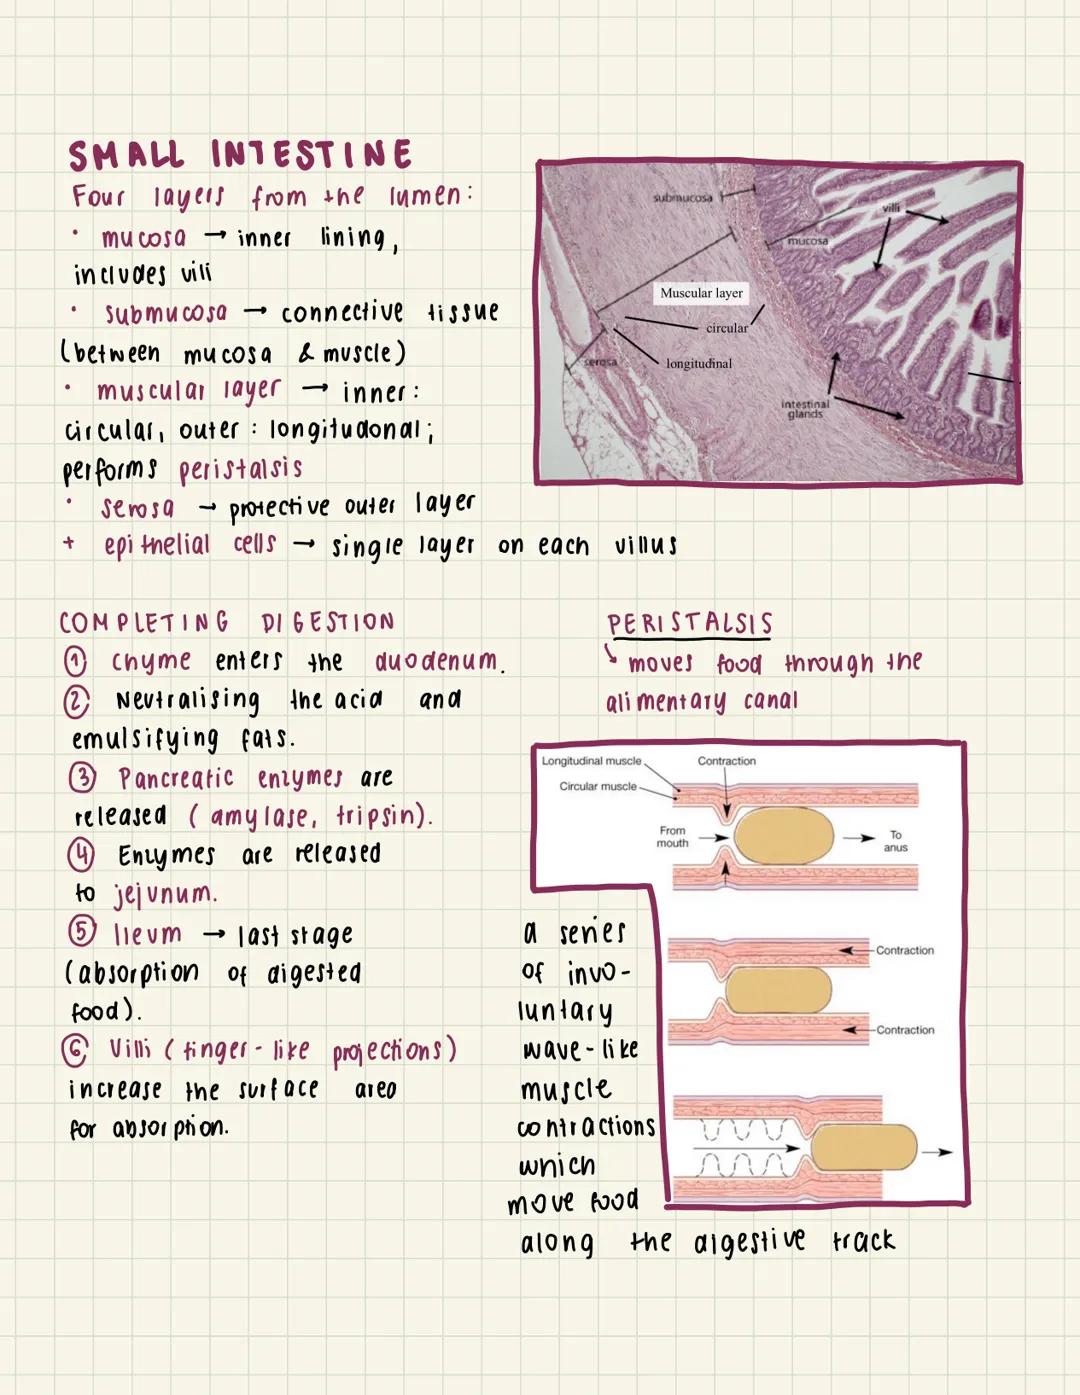 SMALL INTESTINE
Four layers from the lumen:
• mucosa → inner lining,
includes vili
• submucosa → connective tissue
(between mucosa & muscle)
• muscular layer → inner:
circular, outer: longitudonal;
performs peristalsis
• serosa → protective outer layer
+ epithelial cells → single layer on each villus
submucosa
villi
mucosa
Muscular layer
circular
serosa
longitudinal
intestinal
glands
COMPLETING DIGESTION
① chyme enters the duodenum.
② Neutralising the acid and
emulsifying fats.
③ Pancreatic enzymes are
released (amylase, tripsin).
④ Enzymes are released
to jejunum.
⑤ Ileum → last stage
(absorption of digested
food).
⑥ Villi (finger-like projections)
increase the surface area
for absorption.
PERISTALSIS
↳ moves food through the
alimentary canal
Longitudinal muscle
Contraction
Circular muscle
From
mouth
To
anus
Contraction
Contraction
a series
of invo-
luntary
wave-like
muscle
contractions
which
move food
along the digestive track